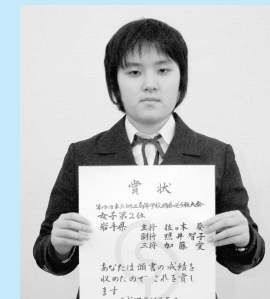 賞状
女子第2位
岩手県 主将 佐々木 葵
副将 照井智子
三将 加藤 愛
あなたは頭書の成績を
収めたのでこれを賞し
ます